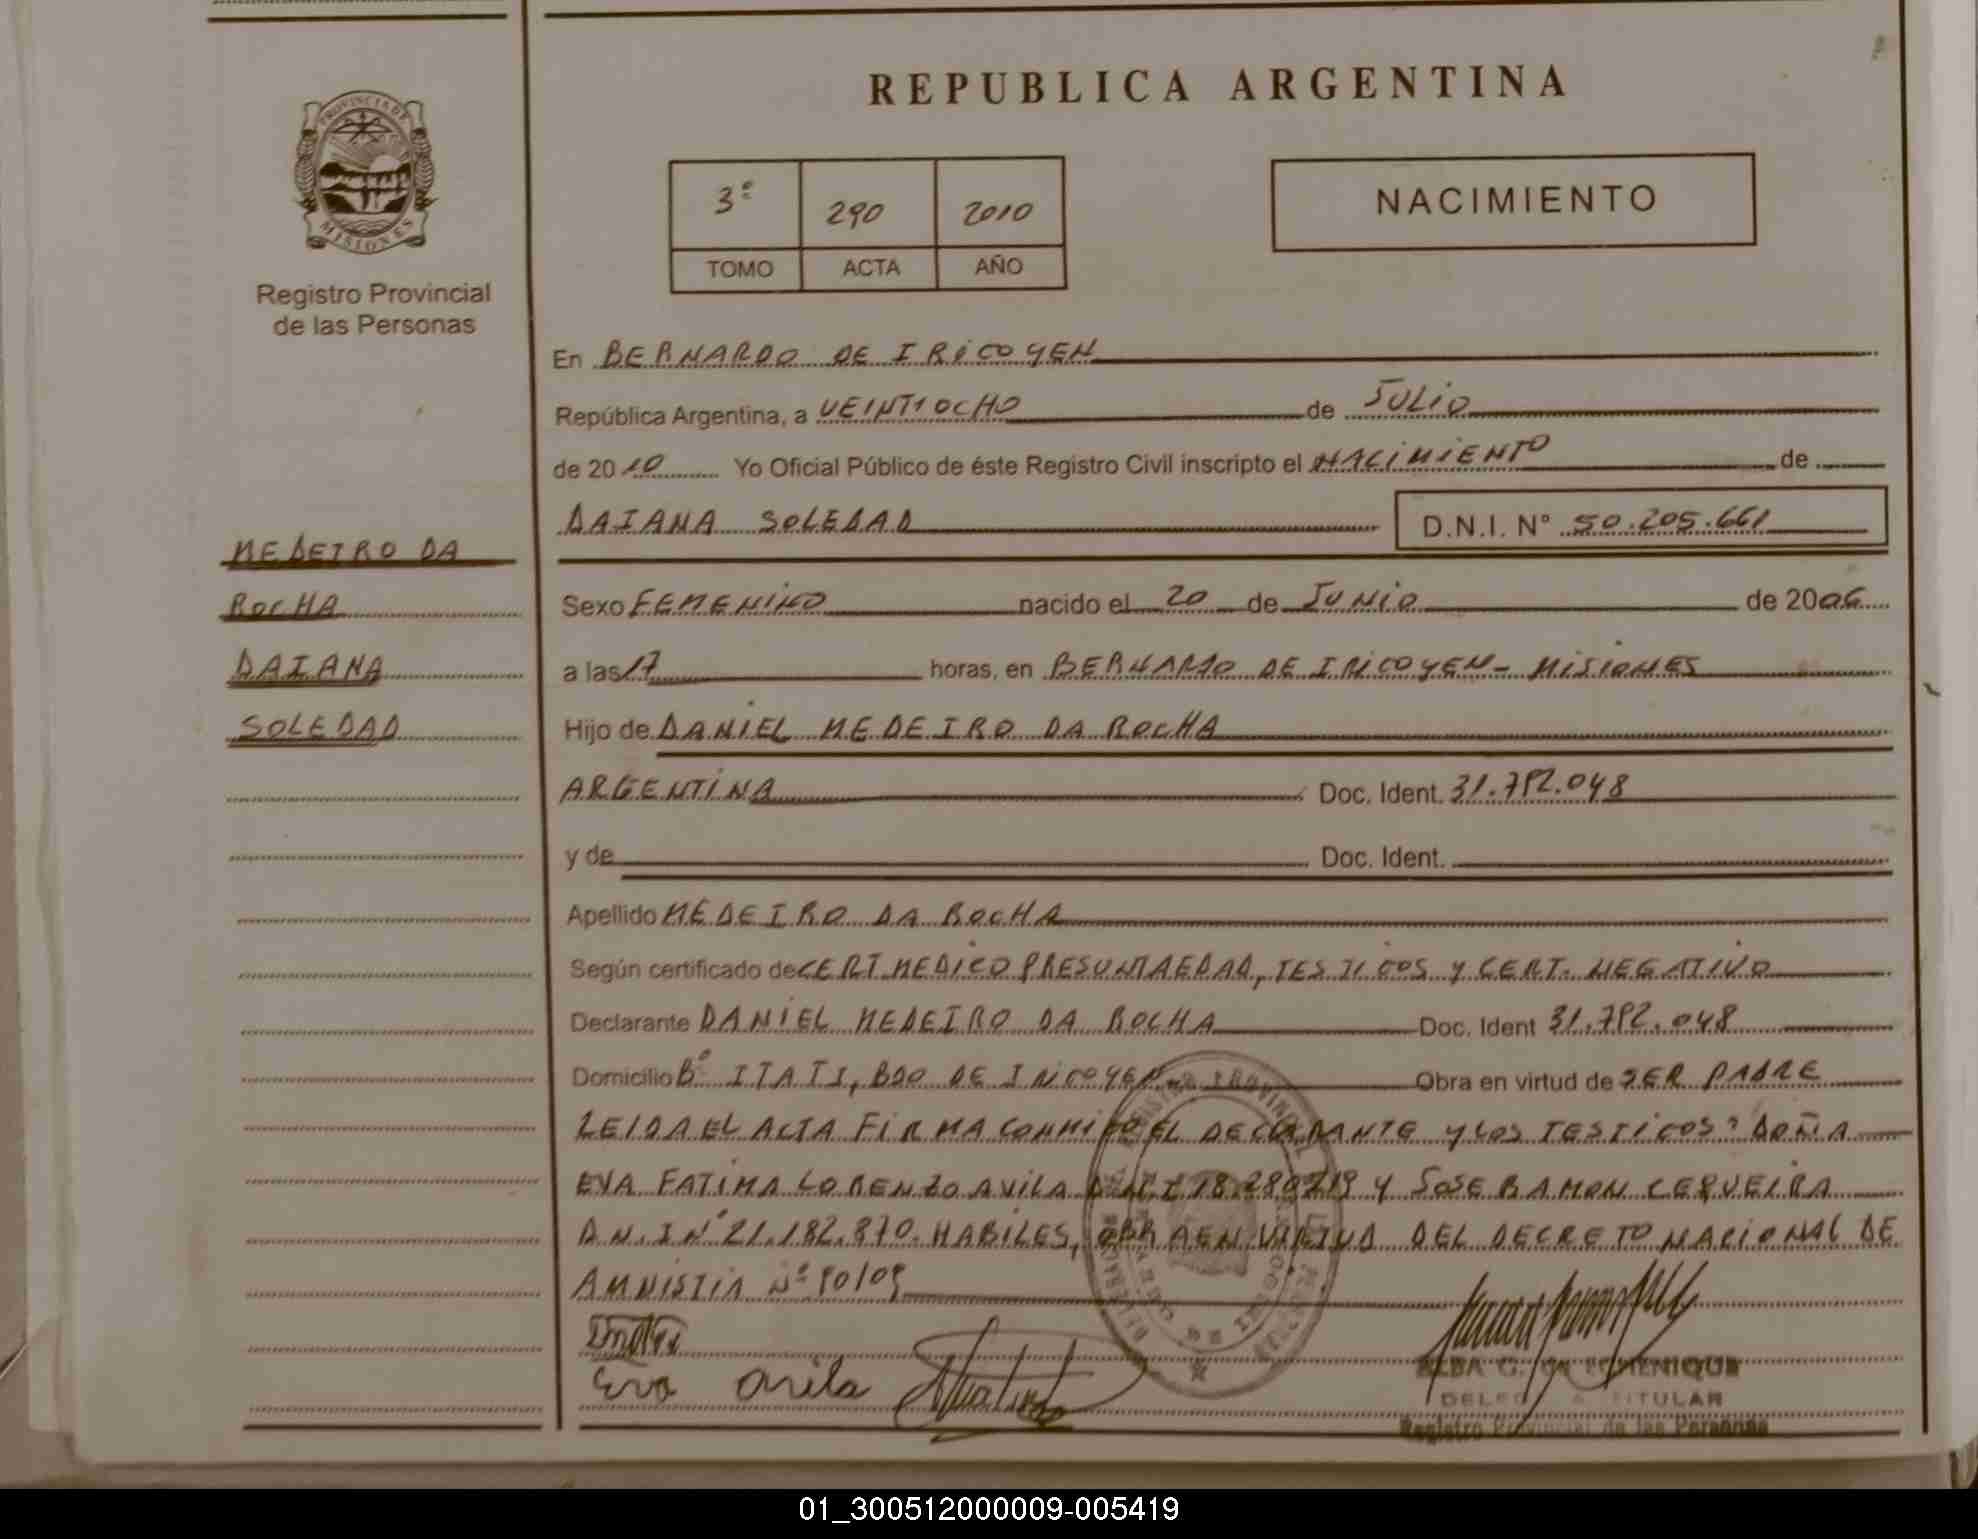 REPUBLICA ARGENTINA
PROVINCIA DE
MISIONES
Registro Provincial
de las Personas
3º 290 2010
TOMO ACTA AÑO
NACIMIENTO
En BERNARDO DE IRIGOYEN
República Argentina, a VEINTIOCHO de JULIO
de 2010 Yo Oficial Público de éste Registro Civil inscripto el NACIMIENTO de
DAIANA SOLEDAD D.N.I. N° 50.205.661
MEDEIRO DA
ROCHA
DAIANA
SOLEDAD
Sexo FEMENINO nacido el 20 de JUNIO de 2006
a las 17 horas, en BERNARDO DE IRIGOYEN - MISIONES
Hijo de DANIEL MEDEIRO DA ROCHA
ARGENTINA Doc. Ident. 31.792.048
y de Doc. Ident.
Apellido MEDEIRO DA ROCHA
Según certificado de CERT MEDICO PRESUNTA EDAD, TESTIGOS Y CERT. NEGATIVO
Declarante DANIEL MEDEIRO DA ROCHA Doc. Ident 31.792.048
Domicilio Bº ITATI, BDO DE IRIGOYEN Obra en virtud de SER PADRE
LEIDA EL ACTA FIRMA CONMIGO EL DECLARANTE Y LOS TESTIGOS: DOÑA
EVA FATIMA LORENZO AVILA Y JOSE RAMON CERQUEIRA
D.N.I Nº 21.182.870. HABILES, OBRA EN VIRTUD DEL DECRETO NACIONAL DE
AMNISTIA Nº 90/09
Eva Avila
ELBA G. DOMENIQUE
DELEGADA TITULAR
Registro Provincial de las Personas
01_300512000009-005419